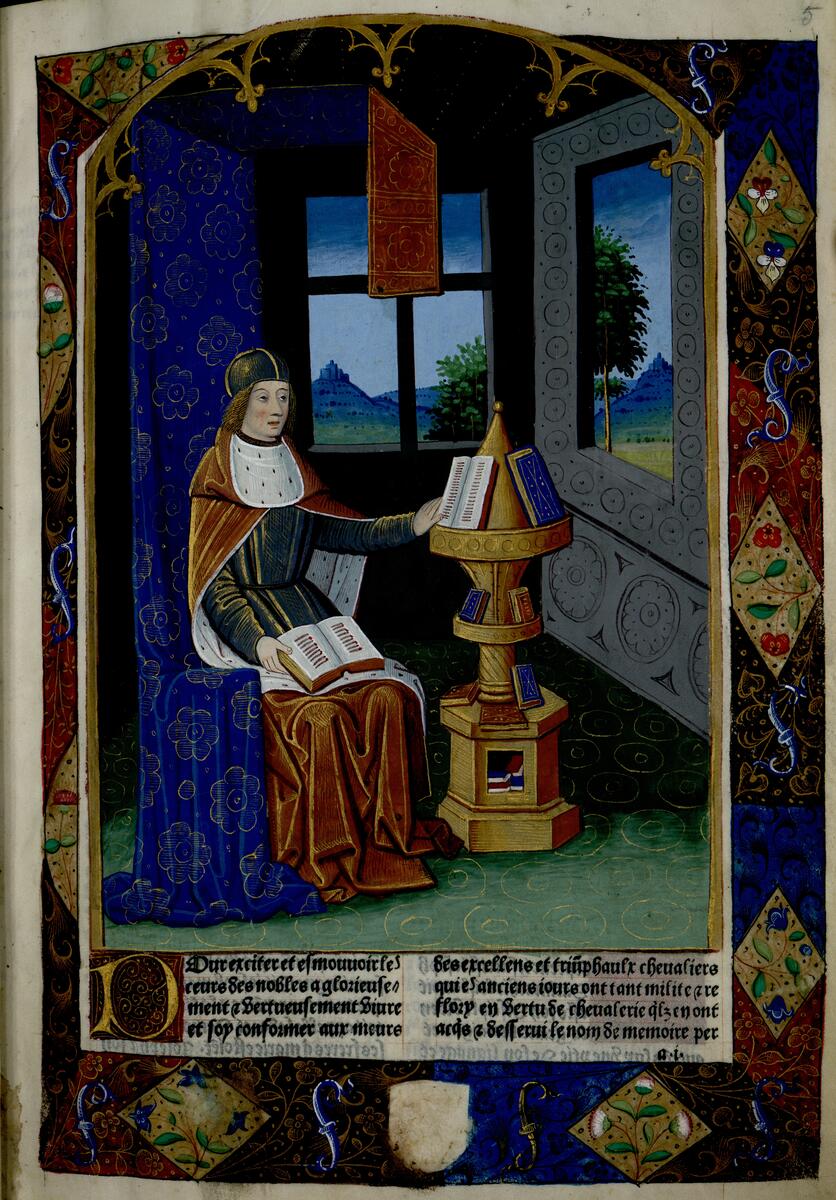 5
Pour exciter et esmouvoir les
ceurs des nobles a glorieuse-
ment & vertueusement vivre
et soy conformer aux meurs
des excellens et triūphaulx chevaliers
qui es anciens iours ont tant milite & re
flory en vertu de chevalerie q̄lz en ont
acq̄s & desservi le nom de memoire per
a.i.